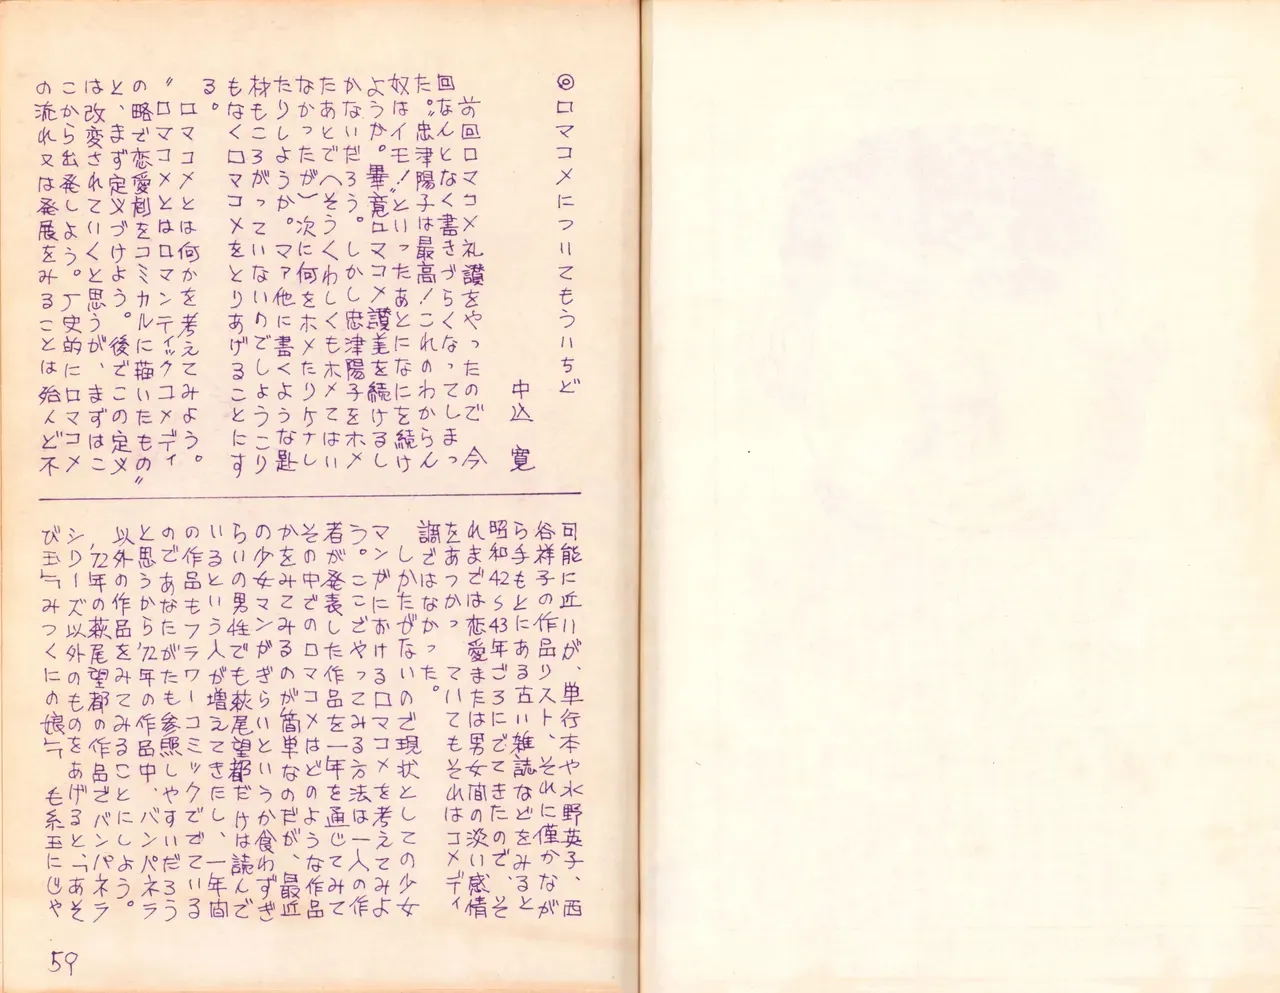 ◎ロマコメについてもういちど
中込 寛
前回ロマコメ礼讃をやったので 今
回なんとなく書きづらくなってしまっ
た。〝忠津陽子は最高！これのわからん
奴はイモ！〟といったあとになにを続け
ようか。畢竟ロマコメ讃美を続けるし
かないだろう。しかし忠津陽子をホメ
たあとで（そうくわしくもホメてはい
なかったが）次に何をホメたりケナし
たりしようか。マァ他に書くような題
材もころがっていないのでしょうこり
もなくロマコメをとりあげることにす
る。
ロマコメとは何かを考えてみよう。
〝ロマコメとはロマンティックコメディ
の略で恋愛劇をコミカルに描いたもの〟
と、まず定義づけよう。後でこの定義
は改変されていくと思うが、まずはこ
こから出発しよう。歴史的にロマコメ
の流れ又は発展をみることは殆んど不
可能に近いが、単行本や水野英子、西
谷祥子の作品リスト、それに僅かなが
ら手もとにある古い雑誌などをみると
昭和42〜43年ごろにでてきたので、そ
れまでは恋愛または男女間の淡い感情
をあつかっていてもそれはコメディ
調ではなかった。
しかたがないので現状としての少女
マンガにおけるロマコメを考えてみよ
う。ここでやってみる方法は一人の作
者が発表した作品を一年を通じてみて
その中でのロマコメはどのような作品
かをみてみるのが簡単なのだが、最近
の少女マンガぎらいというか食わずぎ
らいの男性でも萩尾望都だけは読んで
いるという人が増えてきたし、一年間
の作品もフラワーコミックででている
のであなたがたも参照しやすいだろう
と思うから'72年の作品中、バンパネラ
以外の作品をみてみることにしよう。
'72年の萩尾望都の作品でバンパネラ
シリーズ以外のものをあげると、「あそ
び玉」「みつくにの娘」「毛糸玉にじゃ
59